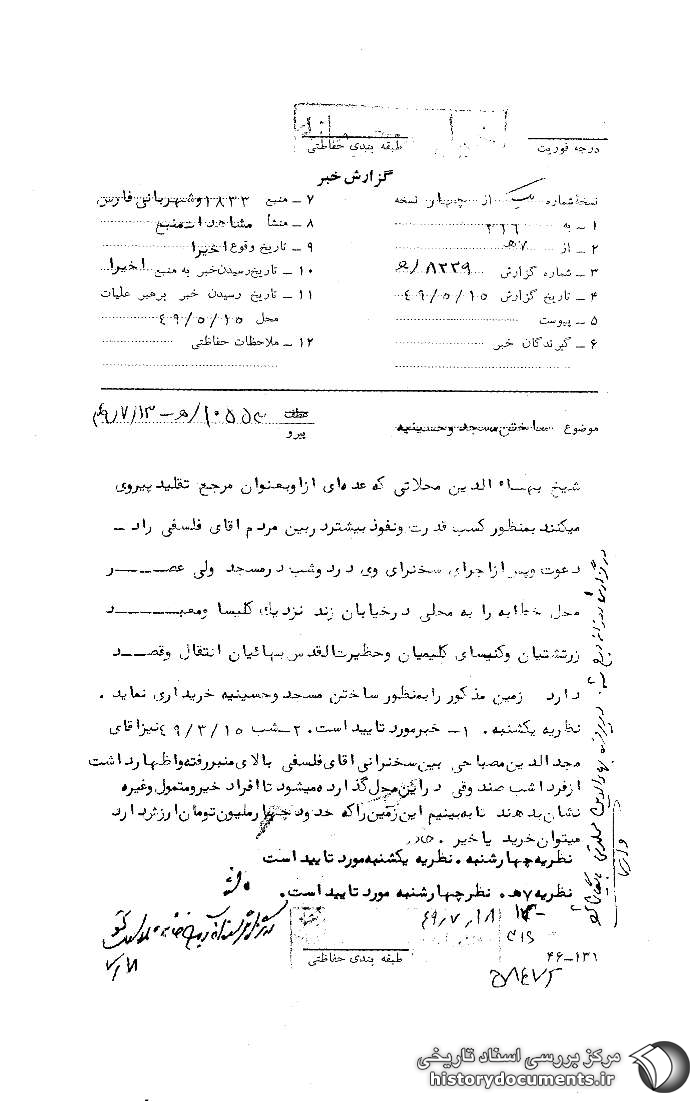 درجه فوریت
طبقه بندی حفاظتی
گزارش خبر
نسخهٔ شماره یک از چهار نسخه
۱ – به ۳۱۶
۲ – از ۷ه‍
۳ – شماره گزارش ۸۲۳۹/ه‍
۴ – تاریخ گزارش ۴۹/۵/۱۵
۵ – پیوست
۶ – گیرندگان خبر
۷ – منبع ۱۸۳۳ وشهربانی فارس
۸ – منشأ مشاهدات منبع
۹ – تاریخ وقوع اخیرا
۱۰ – تاریخ رسیدن خبر به منبع اخیرا
۱۱ – تاریخ رسیدن خبر برهبر عملیات
محل ۴۹/۵/۱۵
۱۲ – ملاحظات حفاظتی
موضوع ساختن مسجد وحسینیه
عطف
پیرو
شیخ بهاء الدین محلاتی که عده‌ای ازاوبعنوان مرجع تقلید پیروی
میکنند بمنظور کسب قدرت ونفوذ بیشتردربین مردم اقای فلسفی راد –
دعوت وپس ازاجرای سخنرای وی درد وشب درمسجد ولی عصر
محل خطابه را به محلی درخیابان زند نزدیک کلیسا ومعبد
زرتشتیان وکنیسای کلیمیان وحظیرت القدس بهائیان انتقال وقصد
دارد زمین مذکور رابه‌نظور ساختن مسجد وحسینیه خریداری نماید .
نظریه یکشنبه . ۱– خبرمورد تایید است . ۲–شب ۴۹/۳/۱۵ نیزاقای
مجد الدین مصباحی بین سخنرانی اقای فلسفی بالای منبررفته واظهارداشت
ازفردا شب صندوقی دراین محل گذارده میشود تا افراد خیرومتمول وغیره
نشان بدهند تا به‌بینیم این زمین راکه حدود چهارملیون تومان ارزش دارد
میتوان خرید یا خیر .
نظریه چهارشنبه . نظریه یکشنبه مورد تایید است
نظریه ۷ه‍ . نظرچهارشنبه مورد تایید است .
۴۹/۷/۱۸
طبقه بندی حفاظتی
۴۶–۱۳۱
۷/۱۸
مرکز بررسی اسناد تاریخی
historydocuments.ir